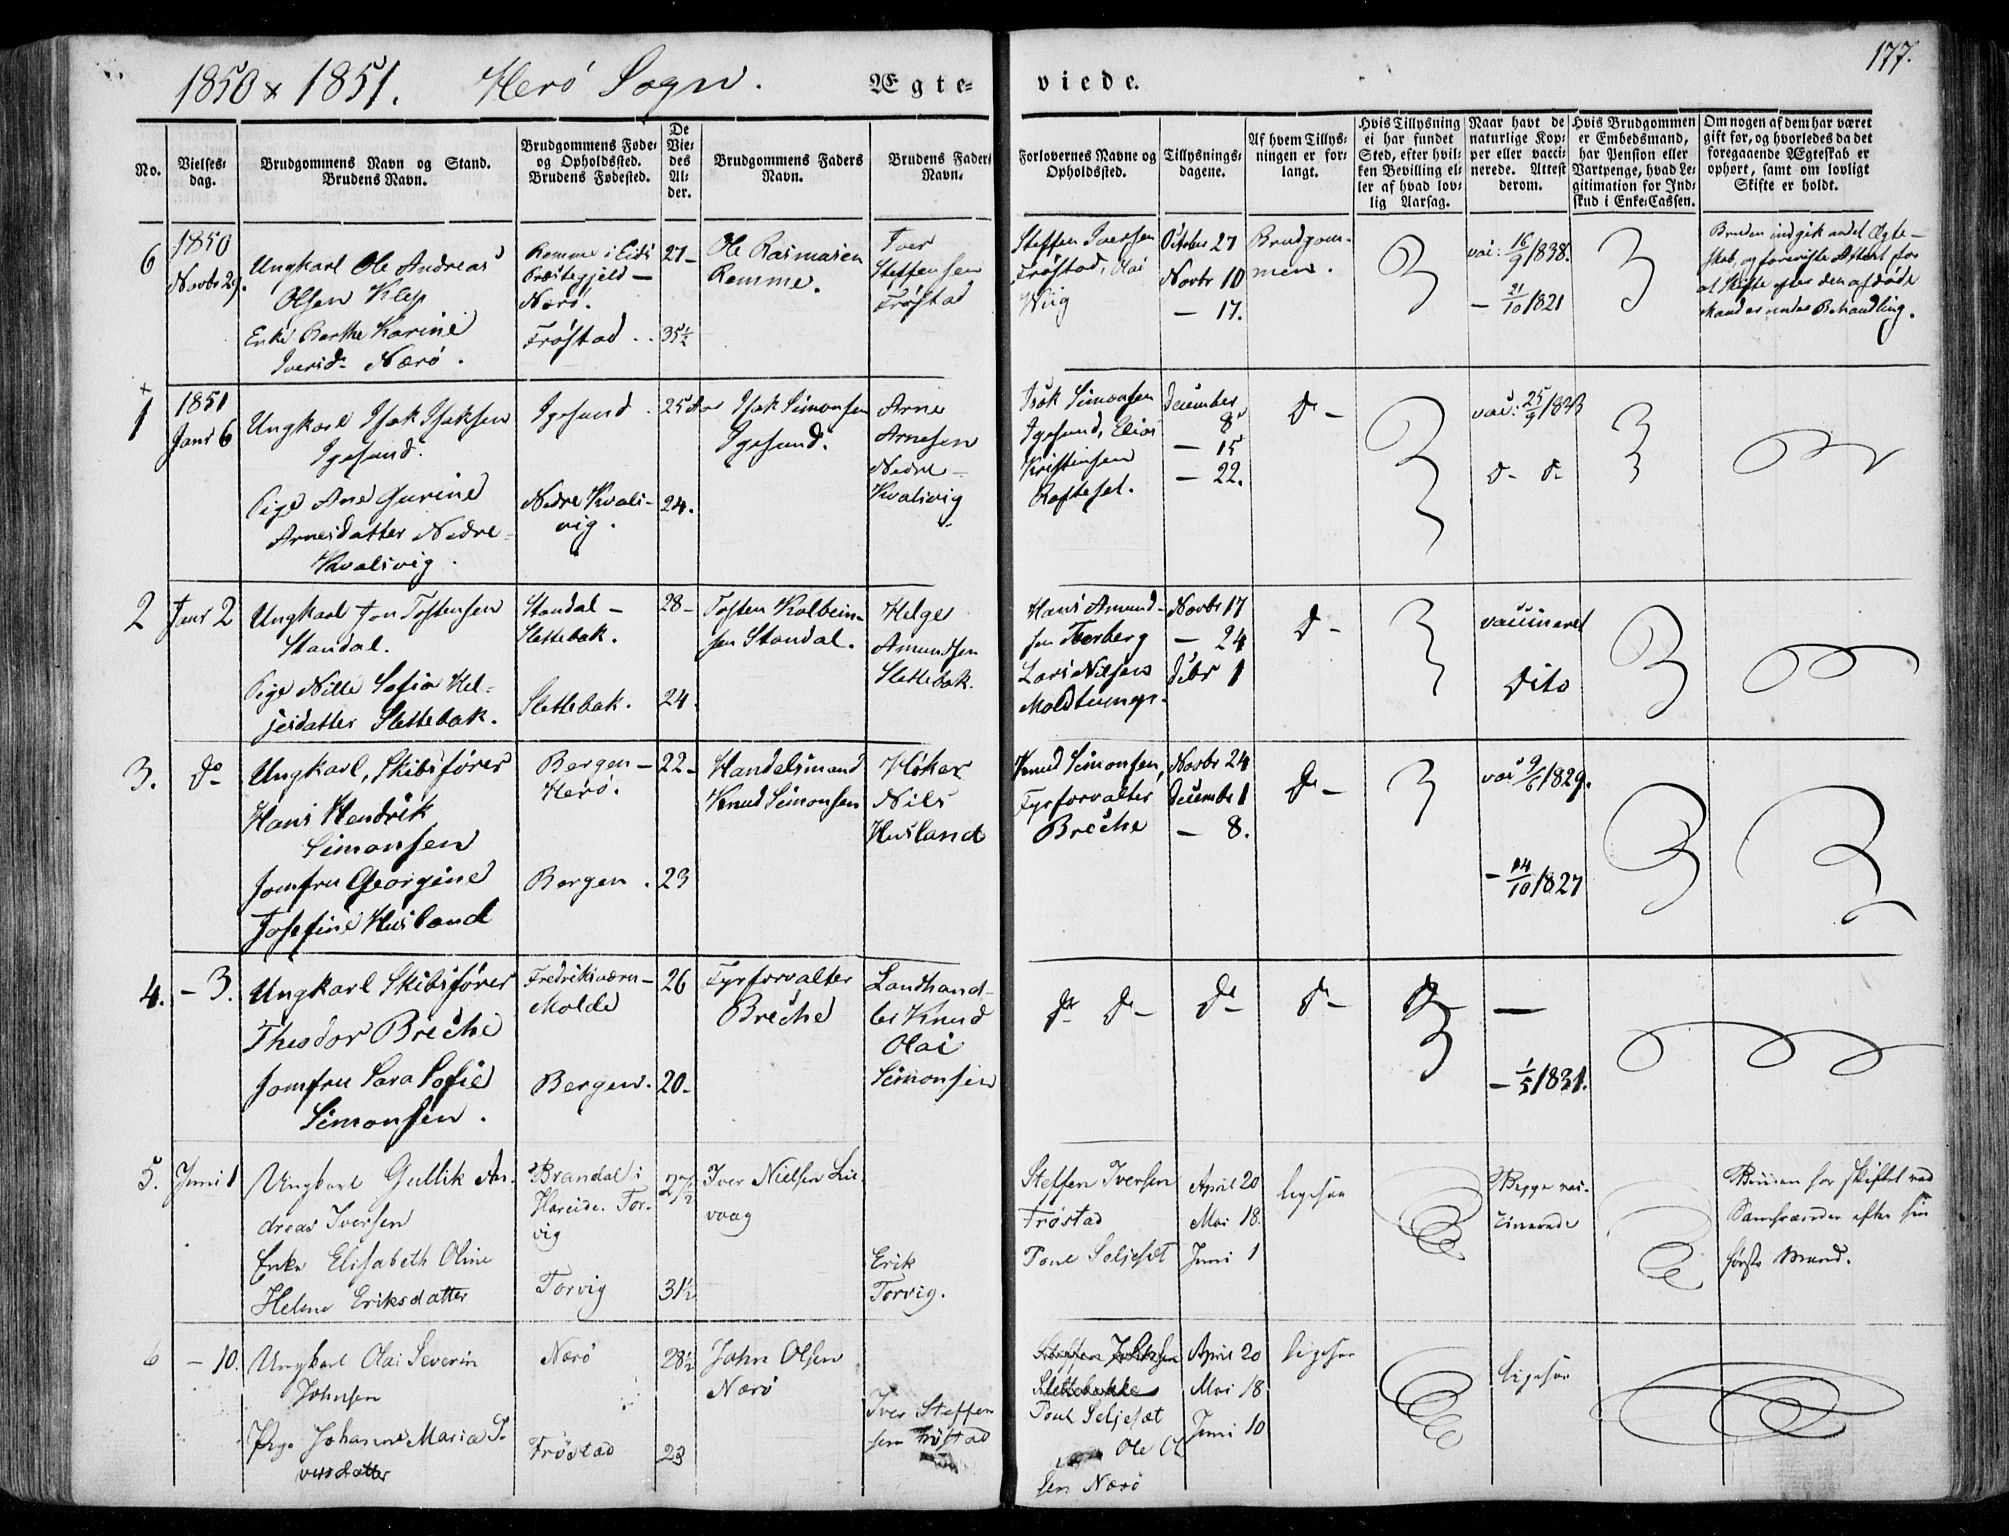 1850 & 1851. Herø Sogn. Ægte-
viede.
177.
No.
Vielses-
dag.
Brudgommens Navn og Stand.
Brudens Navn.
Brudgommens Føde-
og Opholdssted.
Brudens Fødested.
De
Vie-
des
Al-
der.
Brudgommens Faders
Navn.
Brudens Faders
Navn.
Forlovernes Navne og
Opholdssted.
Tillysnings-
dagene.
Af hvem Tillys-
ningen er for-
langt.
Hvis Tillysning
ei har fundet
Sted, efter hvil-
ken Bevilling el-
ler af hvad lov-
lig Aarsag.
Naar havt de
naturlige Kop-
per eller vacci-
nerede. Attest
derom.
Hvis Brudgommen
er Embedsmand,
har Pension eller
Vartpenge, hvad Le-
gitimation for Ind-
skud i Enke-Cassen.
Om nogen af dem har været
gift før, og hvorledes da det
foregaaende Ægteskab er
ophørt, samt om lovligt
Skifte er holdt.
6
1850
Novbr 29.
Ungkarl Ole Andreas
Olsen Klep
Enke Berthe Karine
Iversd. Nærø.
Remme i Eids
Præstegjeld –
Nærø.
Frøstad.
27–
35½
Ole Rasmusen
Remme.
Iver
Steffensen
Frøstad
Steffen Iversen
Frøstad, Olai
Wiig
October 27
Novbr 10
– 17.
Brudgom-
men.
vac: 16/9 1838.
– 21/10 1821
Bruden indgik andet Ægte-
skab, og foreviste Attest for
at Skifte efter den afdøde
Mand er under Behandling.
1
1851
Janr 6
Ungkarl Isak Isaksen
Igesund.
Pige Ane Gurine
Arnesdatter Nedre-
Kvalsvig.
Igesund.
Nedre Kvals-
vig.
25 Aar
24.
Isak Simonsen
Igesund.
Arne
Arnesen
Nedre-
Kvalsvig
Isak Simonsen
Igesund, Elias
Kristensen
Rafteset.
December
8
– 15
– 22.
D–
vac: 25/9 1833
D– D–
2
Janr 2
Ungkarl Jon Tostensen
Standal.
Pige Nille Sofia Hel-
jesdatter Slettebak.
Standal –
Slettebak.
Slettebak.
28–
24.
Tosten Kolbein-
sen Standal.
Helge
Amundsen
Slettebak.
Hans Amund-
sen Torberg
Lars Nilsen
Moldtuengr.
Novbr 17
– 24
Debr 1
D–
vaccineret
Dito
3.
Do
Ungkarl, Skibsfører
Hans Hendrik
Simonsen
Jomfru Georgine
Josefine Husland
Bergen –
Herø.
Bergen.
22–
23
Handelsmand
Knud Simonsen
Høker
Nils
Husland
Knud Simonsen,
Fyrforvalter
Breche
Novbr 24
Decembr 1
– 8.
D–
vac 9/6 1829.
– 14/10 1827
4.
– 3.
Ungkarl Skibsfører
Theodor Breche
Jomfru Sara Sofie
Simonsen.
Fredriksværn –
Molde
Bergen.
26
20–
Fyrforvalter
Breche
Landhand-
ler Knud
Olai
Simonsen
D– D–
D–
D–
D–
–
– 1/5 1831.
5.
Juni 1
Ungkarl Gullik An-
dreas Iversen
Enke Elisabeth Oline
Helene Eriksdatter
Brandal i
Hareide. Tor-
vig
Torvig
27½
31½
Iver Nielsen Lii-
vaag
Erik
Torvig.
Steffen Iversen
Frøstad
Poul Seljesæt
April 20
Mai 18.
Juni 1
ligesaa
Begge vac-
cinerede
Bruden har skiftet med
Samfrænder efter sin
første Mand.
6
– 10.
Ungkarl Olai Severin
Johnsen
Pige Johanne Maria I-
versdatter
Nærø
Frøstad
28½
23
John Olsen
Nærø
Iver Steffen
sen Frøstad
Steffen
Slettebakke
Poul Seljesæt
Ole Ol
sen Nærø
April 20
Mai 18
Juni 10
ligesaa
ligesaa